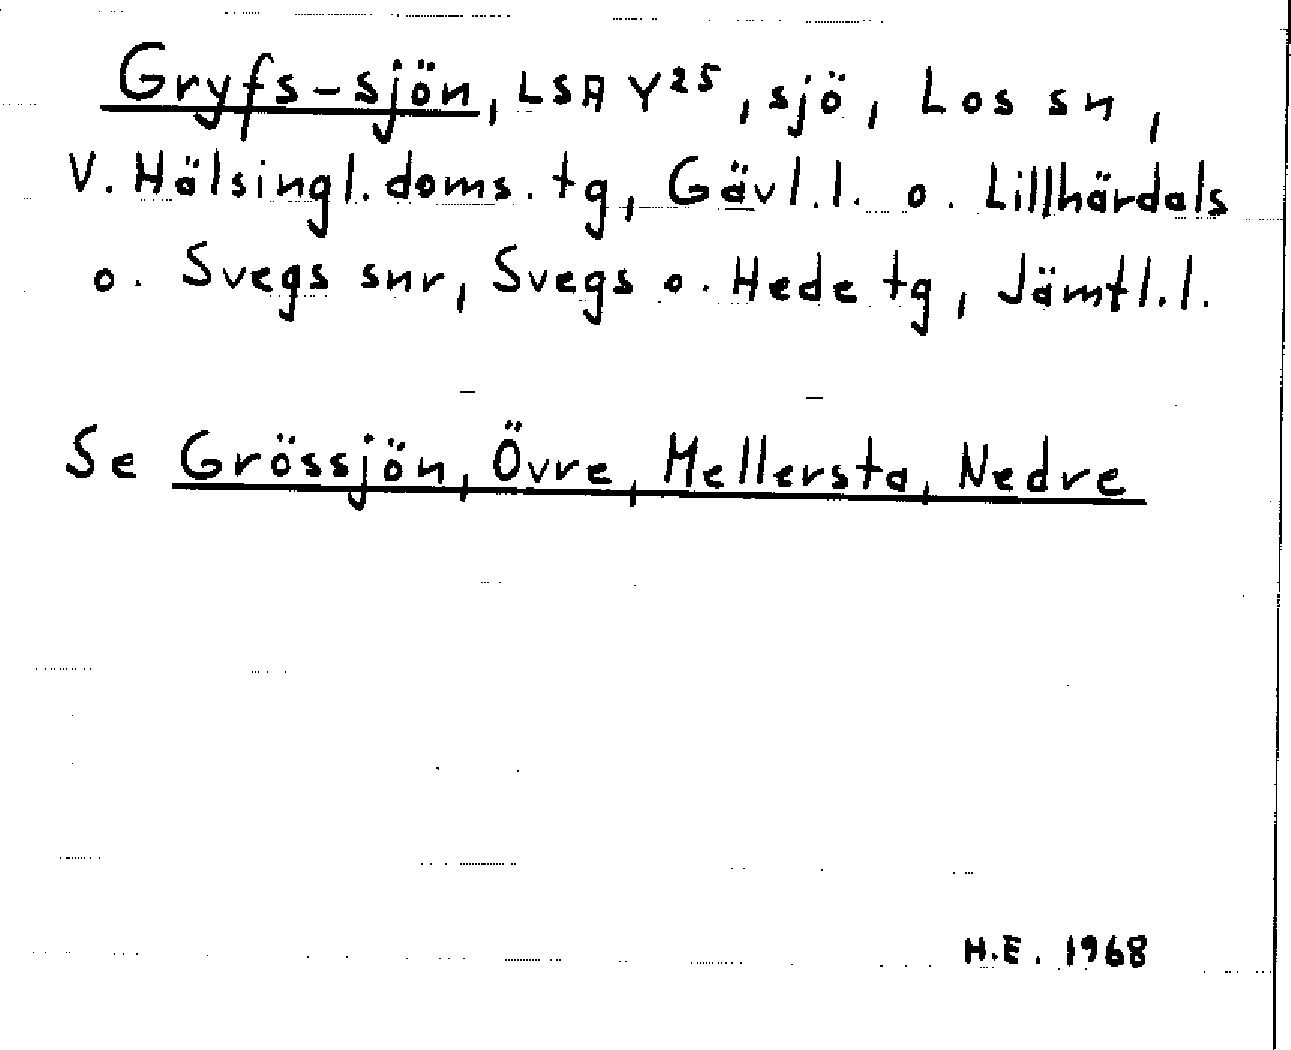 Gryfs-sjön, LSA Y25, sjö, Los sn,
V. Hälsingl. doms. tg, Gävl.l. o. Lillhärdals
o. Svegs snr, Svegs o. Hede tg, Jämtl.l.
Se Grössjön, Övre, Mellersta, Nedre
H.E. 1968